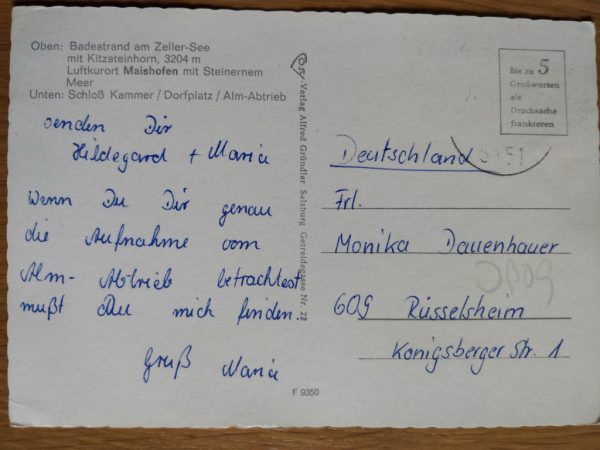 Oben: Badestrand am Zeller-See
mit Kitzsteinhorn, 3204 m
Luftkurort Maishofen mit Steinernem
Meer
Unten: Schloß Kammer / Dorfplatz / Alm-Abtrieb
senden Dir
Hildegard + Maria
Wenn Du Dir genau
die Aufnahme vom
Alm-Abtrieb betrachtest
mußt Du mich finden!
Gruß Maria
F 9350
Verlag Alfred Gründler Salzburg Getreidegasse Nr. 22
Bis zu 5
Grußworten
als
Drucksache
frankieren
Deutschland
Frl.
Monika Dauenhauer
609 Rüsselsheim
Königsberger Str. 1